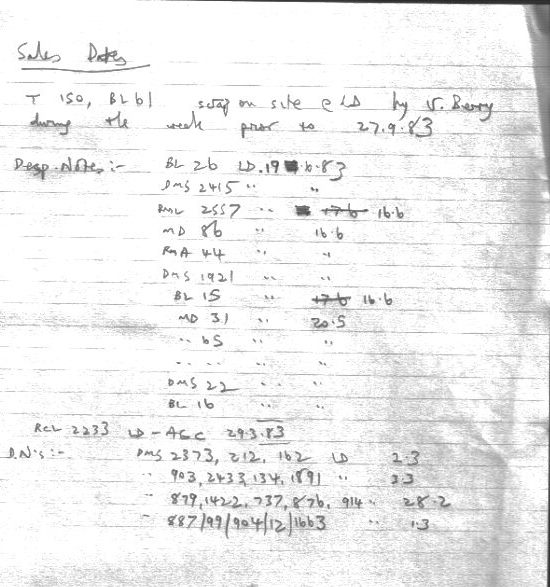 Sales Dates
T 150, BL 61 scrap on site @ LD by V. Berry
during the week prior to 27.9.83
Desp. Notes :- BL 26 LD. 19 6.83
DMS 2415 " "
RML 2557 " 17.6 16.6
MD 86 " 16.6
RMA 44 " "
DMS 1921 " "
BL 15 " 17.6 16.6
MD 31 " 20.5
" 65 " "
" " " "
DMS 22 " "
BL 16 " "
RCL 2233 LD - AEC 29.3.83
D.N's :- DMS 2373, 212, 162 LD 2.3
" 903, 2433, 134, 1891 " 3.3
" 879, 1422, 737, 876, 914 " 28.2
" 887/99/904/12/1663 " 1.3